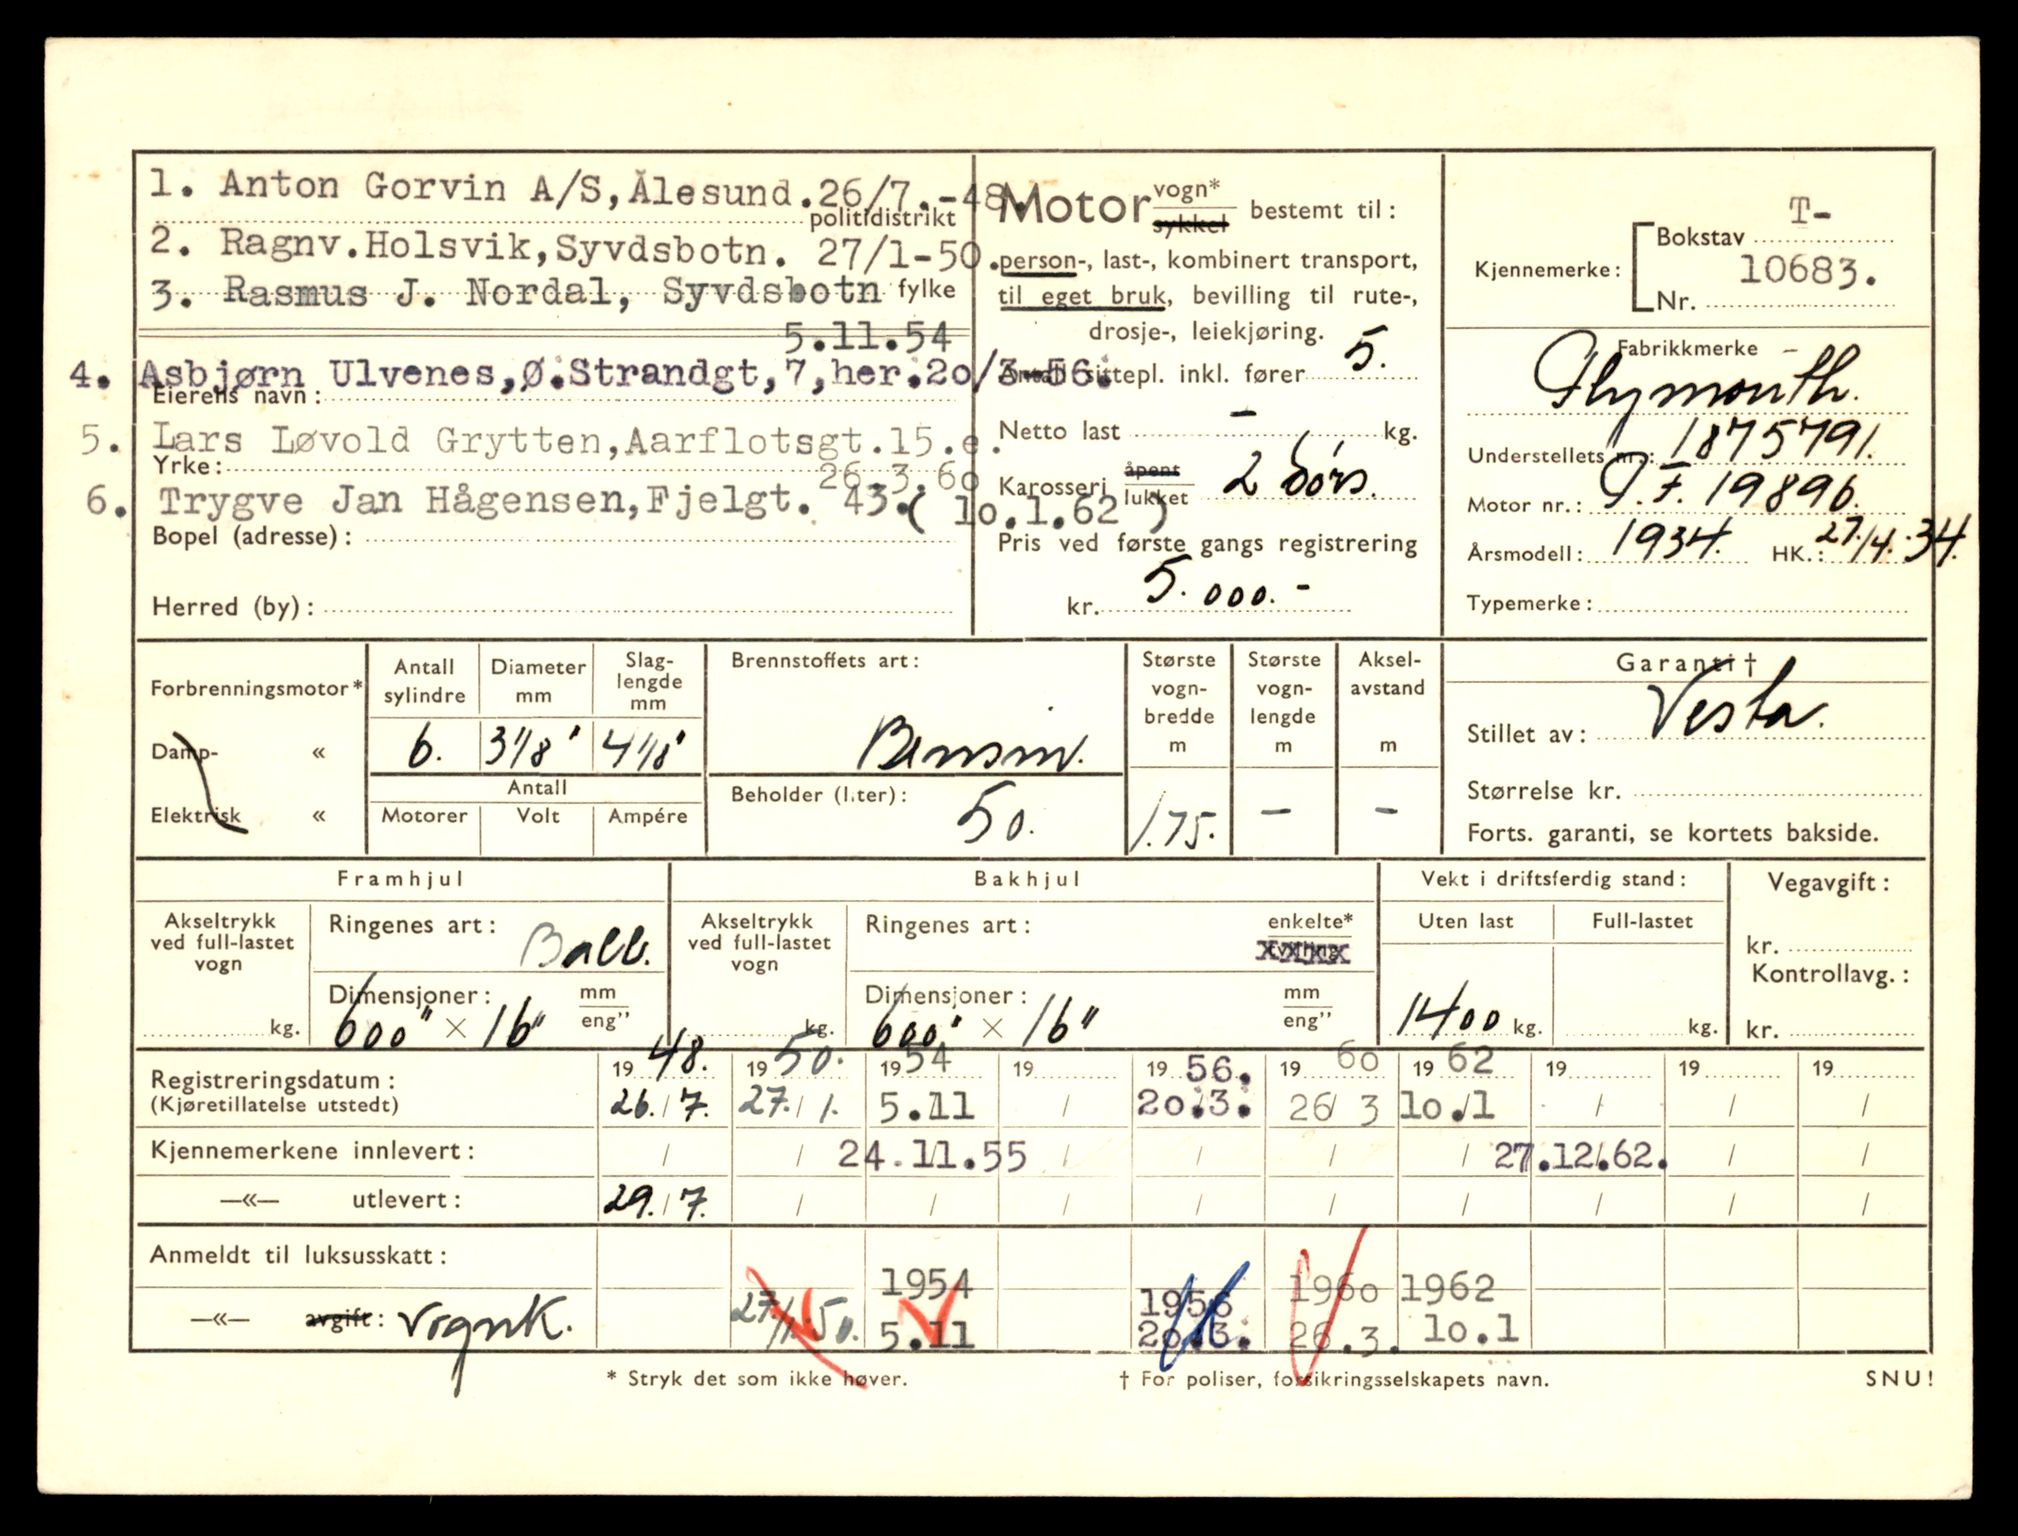 1. Anton Gorvin A/S,Ålesund.26/7.-48.
politidistrikt
2. Ragnv.Holsvik,Syvdsbotn. 27/1-50.
3. Rasmus J. Nordal, Syvdsbotn fylke
5.11.54
4. Asbjørn Ulvenes,Ø.Strandgt,7,her.2o/3-56.
Eierens navn :
5. Lars Løvold Grytten,Aarflotsgt.15.e.
Yrke: 26.3.6o
6. Trygve Jan Hågensen,Fjelgt. 43.( 1o.1.62 )
Bopel (adresse) :
Herred (by) :
Motor vogn* sykkel bestemt til :
person-, last-, kombinert transport,
til eget bruk, bevilling til rute-,
drosje-, leiekjøring.
Antall sittepl. inkl. fører 5.
Netto last – kg.
Karosseri åpent lukket 2 dørs.
Pris ved første gangs registrering
kr. 5.000.-
Kjennemerke: Bokstav T-
Nr. 10683.
Fabrikkmerke –
Plymouth.
Understellets nr.: 1875791.
Motor nr.: P.F. 19896.
Årsmodell: 1934. HK.: 27./4.34.
Typemerke:
Forbrenningsmotor*
Damp- «
Elektrisk «
Antall sylindre 6.
Diameter mm 3 1/8"
Slag-lengde mm 4 1/8"
Antall
Motorer Volt Ampére
Brennstoffets art: Bensin.
Beholder (liter): 50.
Største vogn-bredde m 1.75.
Største vogn-lengde m –
Aksel-avstand m –
Garanti †
Stillet av: Vesta.
Størrelse kr.
Forts. garanti, se kortets bakside.
Framhjul
Akseltrykk ved full-lastet vogn kg.
Ringenes art: Ball.
Dimensjoner: 600" × 16" mm eng”
Bakhjul
Akseltrykk ved full-lastet vogn kg.
Ringenes art: enkelte*
Dimensjoner: 600" × 16" mm eng”
Vekt i driftsferdig stand:
Uten last Full-lastet
1400 kg. kg.
Vegavgift:
kr.
Kontrollavg.:
kr.
Registreringsdatum: 1948. 1950. 1954 19 1956. 1960 1962 19 19 19
(Kjøretillatelse utstedt) 26./7. 27./1. 5.11 / 2o.3. 26/3 1o.1 / / /
Kjennemerkene innlevert: / / 24.11.55 / / / / 27.12.62. / /
—«— utlevert: 29./7. / / / / / / / / /
Anmeldt til luksusskatt:
—«— avgift: Vognk. 27./1.50. 1954 5.11 1956 2o.3. 196o 26.3. 1962 1o.1
* Stryk det som ikke høver.
† For poliser, forsikringsselskapets navn.
SNU!